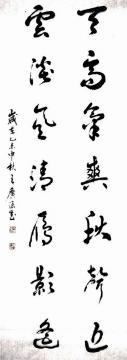 天高氣爽秋聲近
雲淡風清雁影遙
歲在乙未中秋